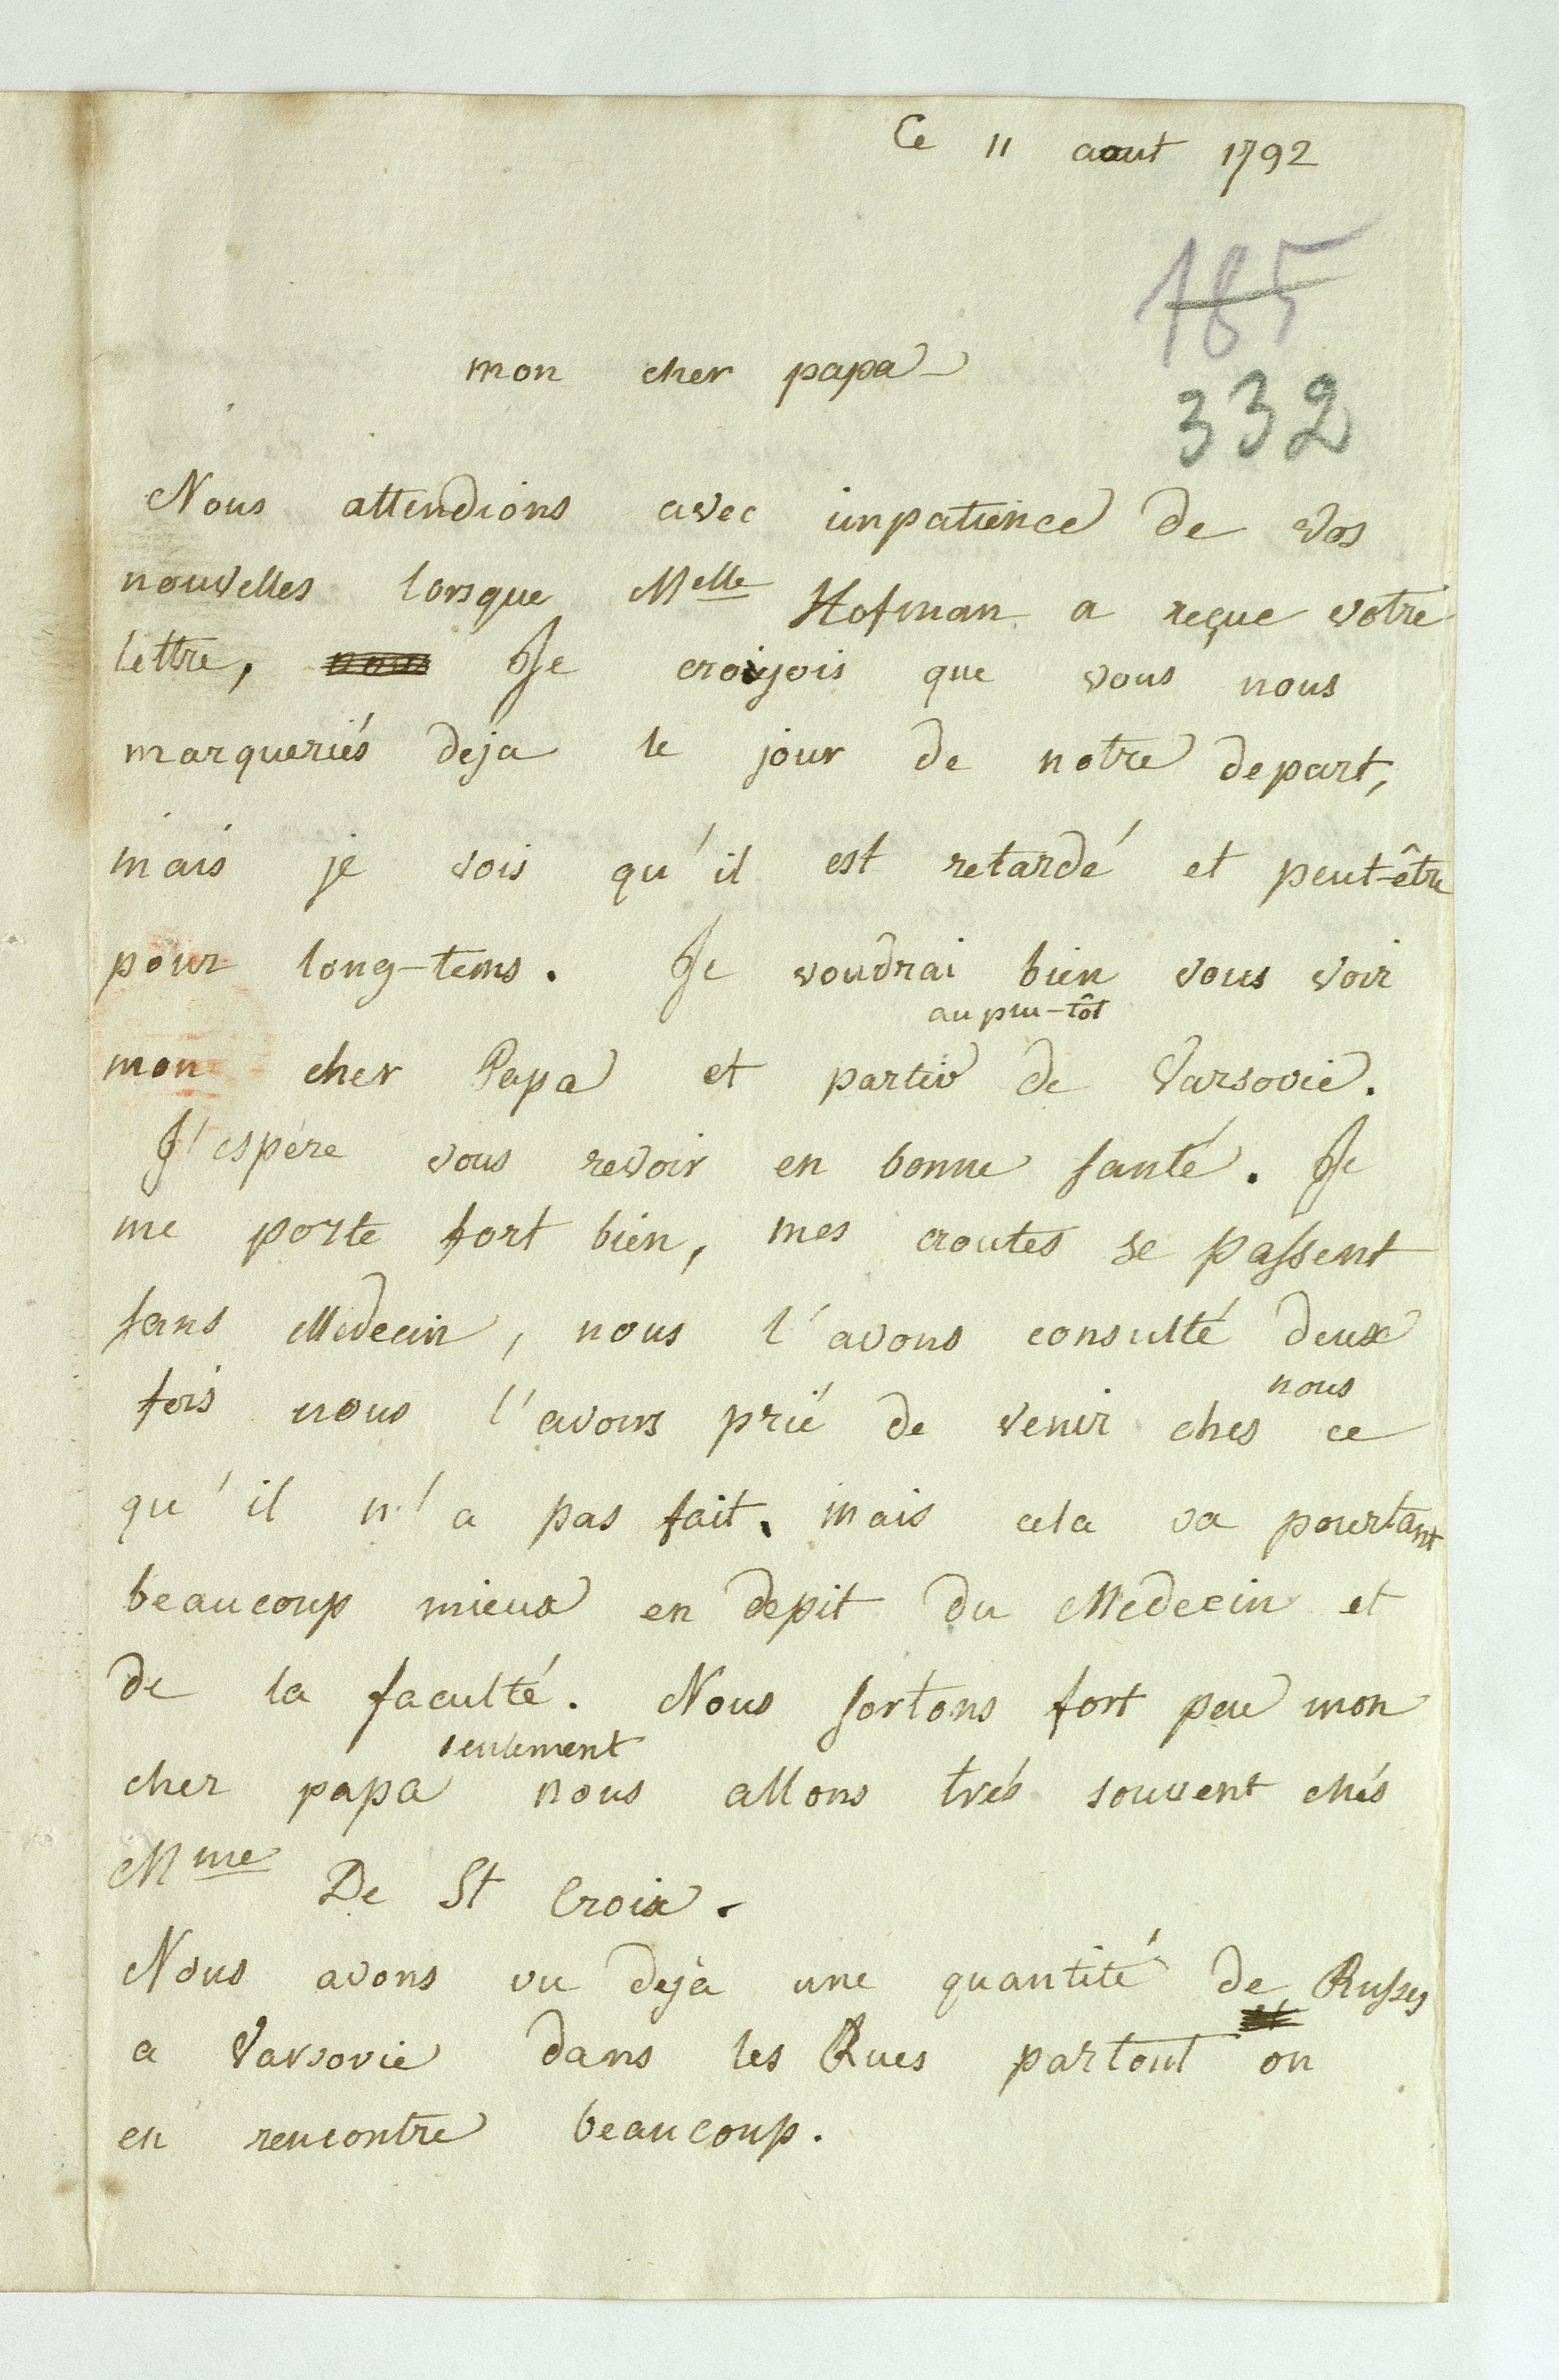 Ce 11 aout 1792
185
332
mon cher papa
Nous attendions avec impatience de vos
nouvelles lorsque Melle Hofman a reçue votre
lettre, nous Je croiyois que vous nous
marqueriés deja le jour de notre depart,
mais je vois qu'il est retardé et peut-être
pour long-tems. Je voudrai bien vous voir
au plu-tôt
mon cher Papa et partir de Varsovie.
J'espère vous revoir en bonne santé. Je
me porte fort bien, mes croutes se passent
sans Medecin, nous l'avons consulté deux
nous
fois nous l'avons prié de venir ches ce
qu'il n'a pas fait. mais cela va pourtant
beaucoup mieux en depit du Medecin et
de la faculté. Nous sortons fort peu mon
seulement
cher papa nous allons trés souvent chés
Mme De St Croix.
Nous avons vu dejà une quantité de Russes
a Varsovie dans les Rues partout on
en rencontre beaucoup.